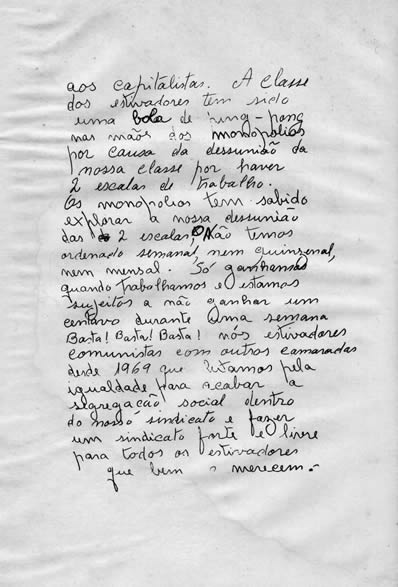 aos capitalistas. A classe
dos estivadores tem sido
uma bola de ping-pong
nas mãos dos monopólios
por causa da dessunião da
nossa classe por haver
2 escalas de trabalho.
Os monopolios tem sabido
explorar a nossa dessunião
das 2 escalas, Não temos
ordenado semanal, nem quinzenal,
nem mensal. Só ganhamos
quando trabalhamos e estamos
sujeitos a não ganhar um
centavo durante uma semana
Basta! Basta! Basta! nós estivadores
comunistas com outros camaradas
desde 1969 que lutamos pela
igualdade para acabar a
segregação social dentro
do nosso sindicato e fazer
um sindicato forte e livre
para todos os estivadores
que bem o merecem.